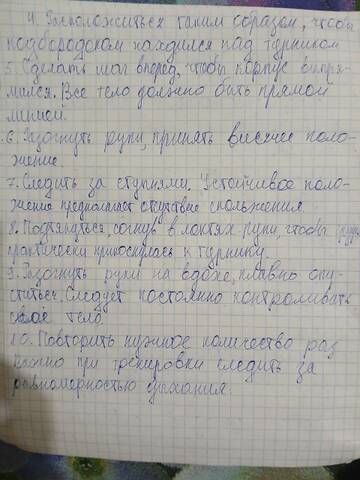 4. Расположиться таким образом, чтобы
подбородком находился над турником
5. Сделать шаг вперед, чтобы корпус выпря-
мился. Все тело должно быть прямой
линией.
6. Разогнуть руки, принять висячее поло-
жение.
7. Следить за ступнями. Устойчивое поло-
жение предполагает отсутствие скольжения.
8. Подтянуться, согнув в локтях руки, чтобы грудь
практически прикоснулась к турнику.
9. Разогнуть руки на вдохе, плавно опу-
ститься. Следует постоянно контролировать
свое тело.
10. Повторить нужное количество раз
важно при тренировки следить за
равномерностью дыхания.